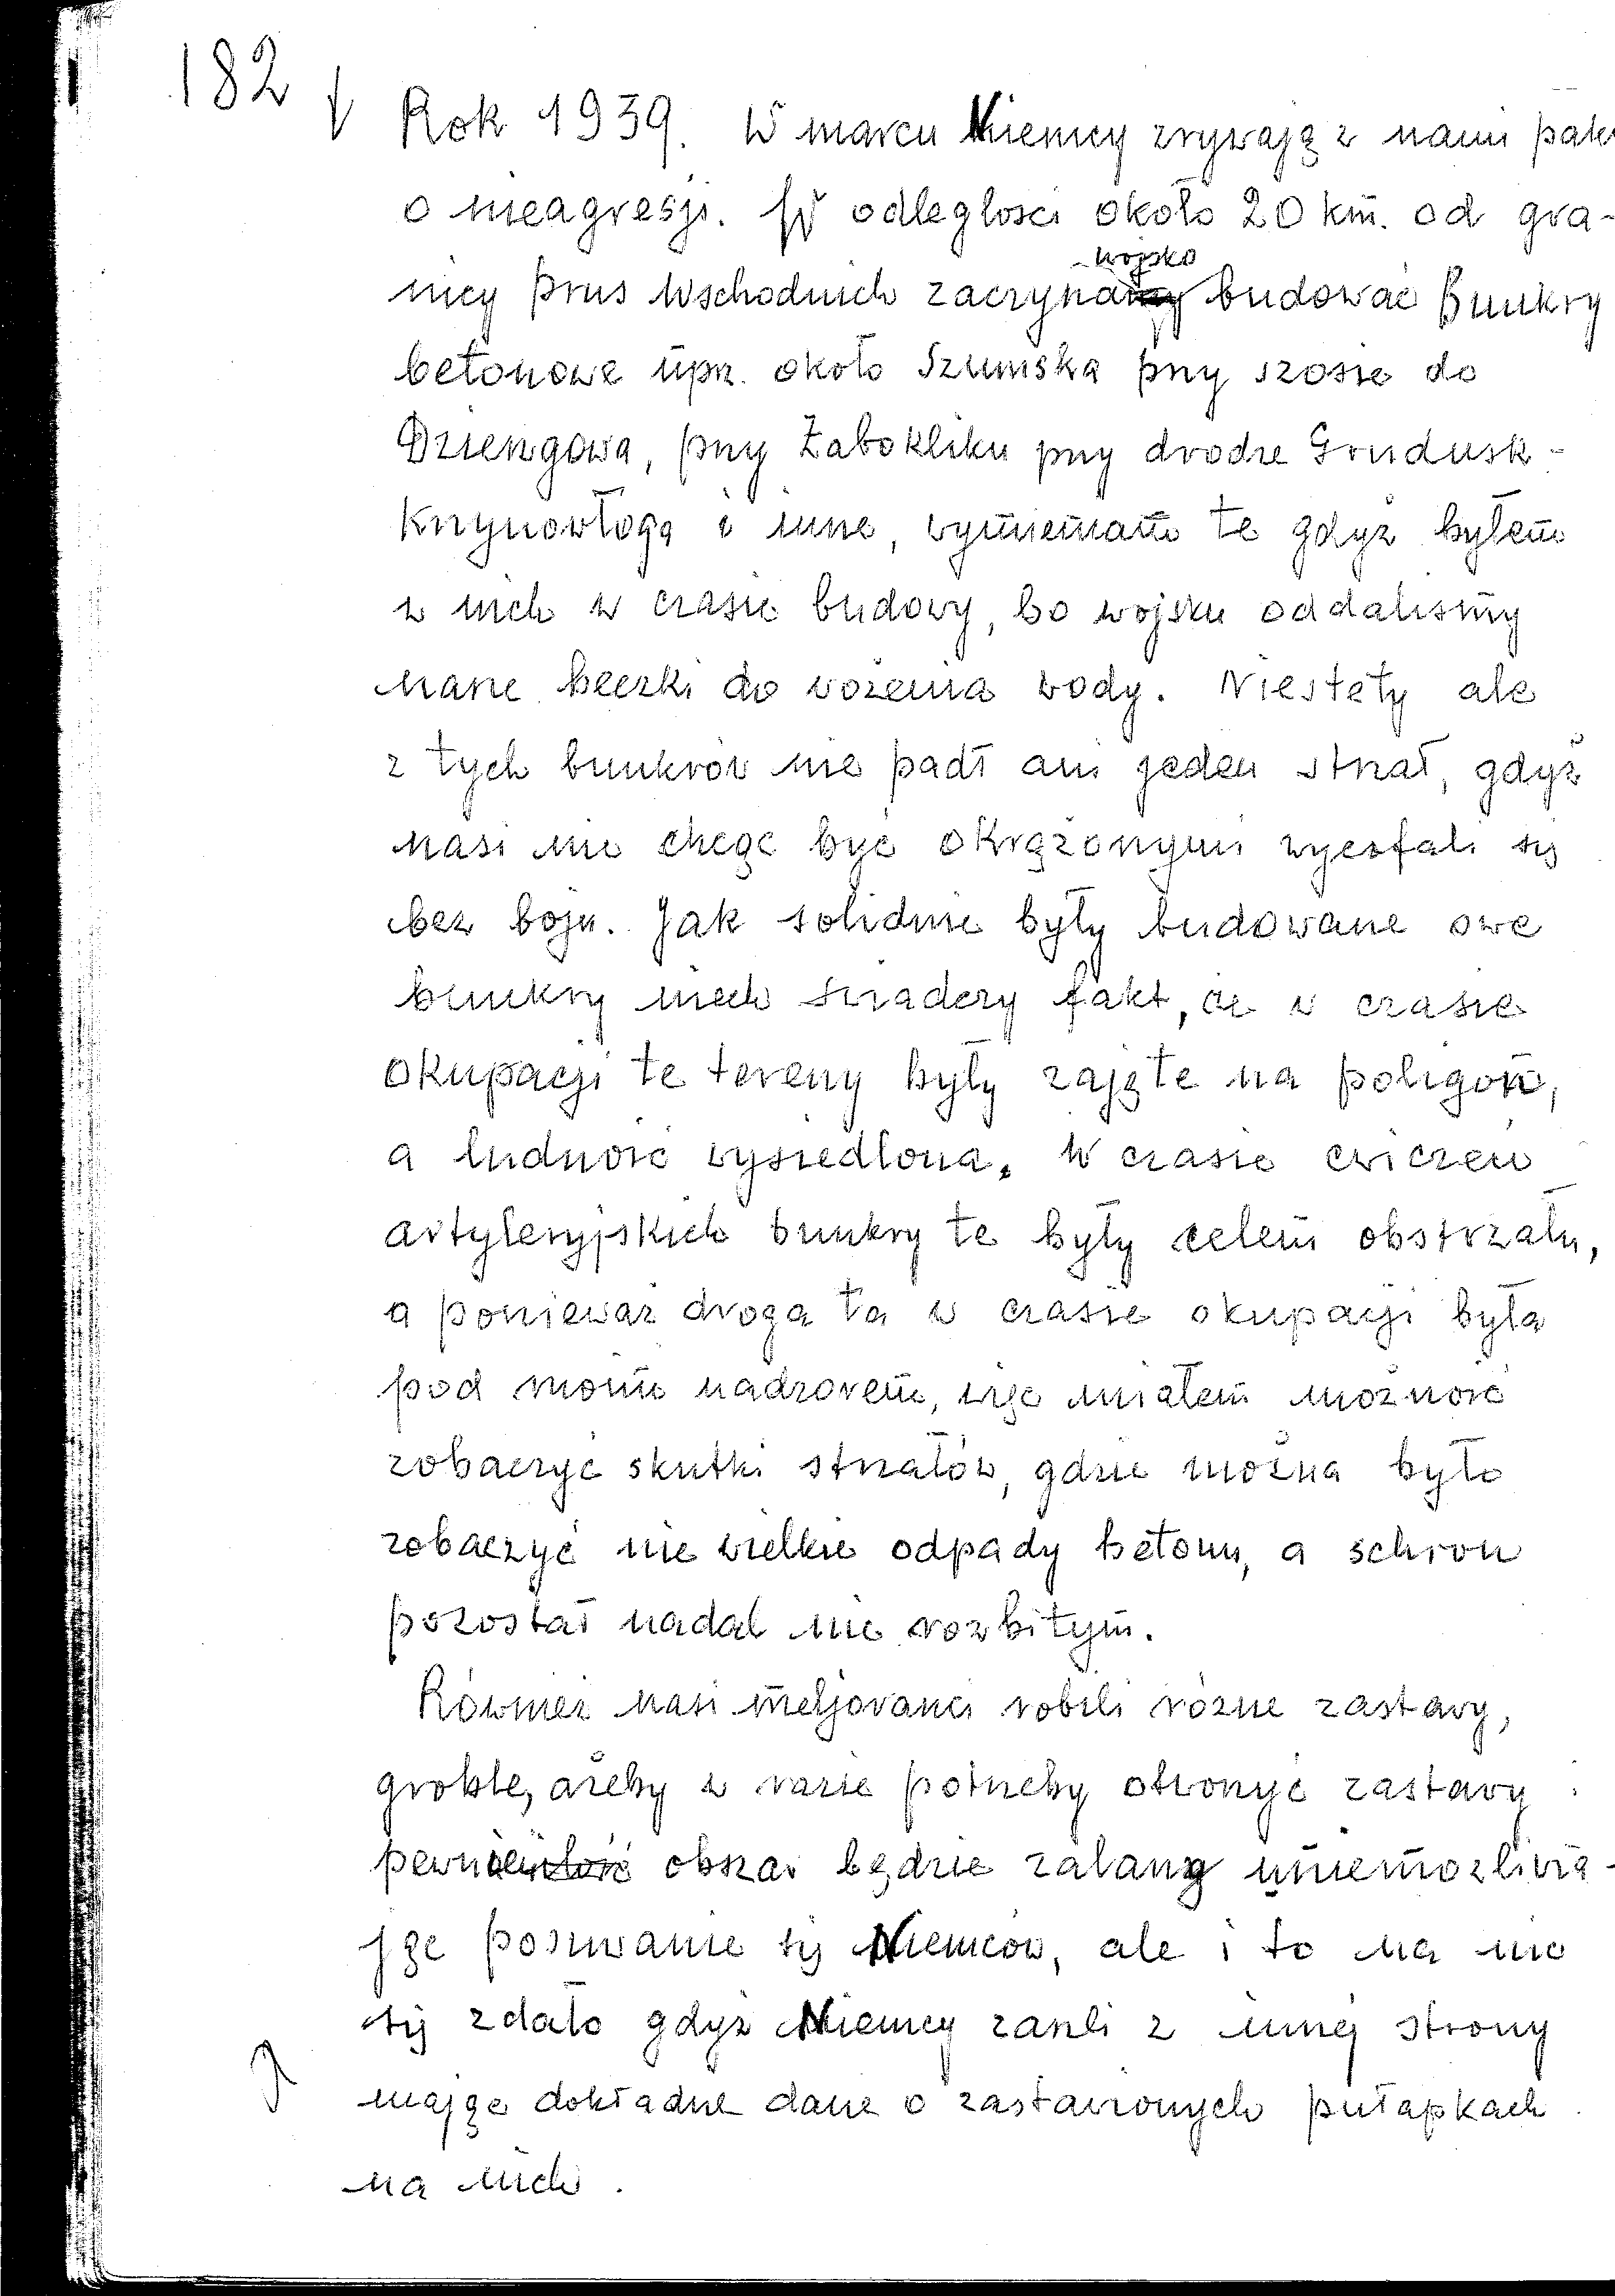 182
Rok 1939. W marcu Niemcy zrywają z nami pakt
o nieagresji. W odległości około 20 km. od gra-
wojsko
nicy Prus Wschodnich zaczyna budować Bunkry
betonowe npz. około Szumska przy szosie do
Dzierzgowa, przy Żabokliku przy drodze Grudusk-
Krzynowłoga i inne, wymieniam te gdyż byłem
w nich w czasie budowy, bo wojsku oddaliśmy
nasze beczki do wożenia wody. Niestety ale
z tych bunkrów nie padł ani jeden strzał, gdyż
nasi nie chcąc być okrążonymi wycofali się
bez boju. Jak solidnie były budowane owe
bunkry niech świadczy fakt, że w czasie
okupacji te tereny były zajęte na poligon,
a ludność wysiedlona. W czasie ćwiczeń
artyleryjskich bunkry te były celem obstrzału,
a ponieważ droga ta w czasie okupacji była
pod moim nadzorem, więc miałem możność
zobaczyć skutki strzałów, gdzie można było
zobaczyć nie wielkie odpady betonu, a schron
pozostał nadal nie rozbitym.
Również nasi meljoranci robili różne zastawy,
groble, ażeby w razie potrzeby otworzyć zastawy
pewien obszar będzie zalany uniemożliwia-
jąc posuwanie się Niemców, ale i to na nic
się zdało gdyż Niemcy zaszli z innej strony
mając dokładne dane o zastawionych pułapkach
na nich.